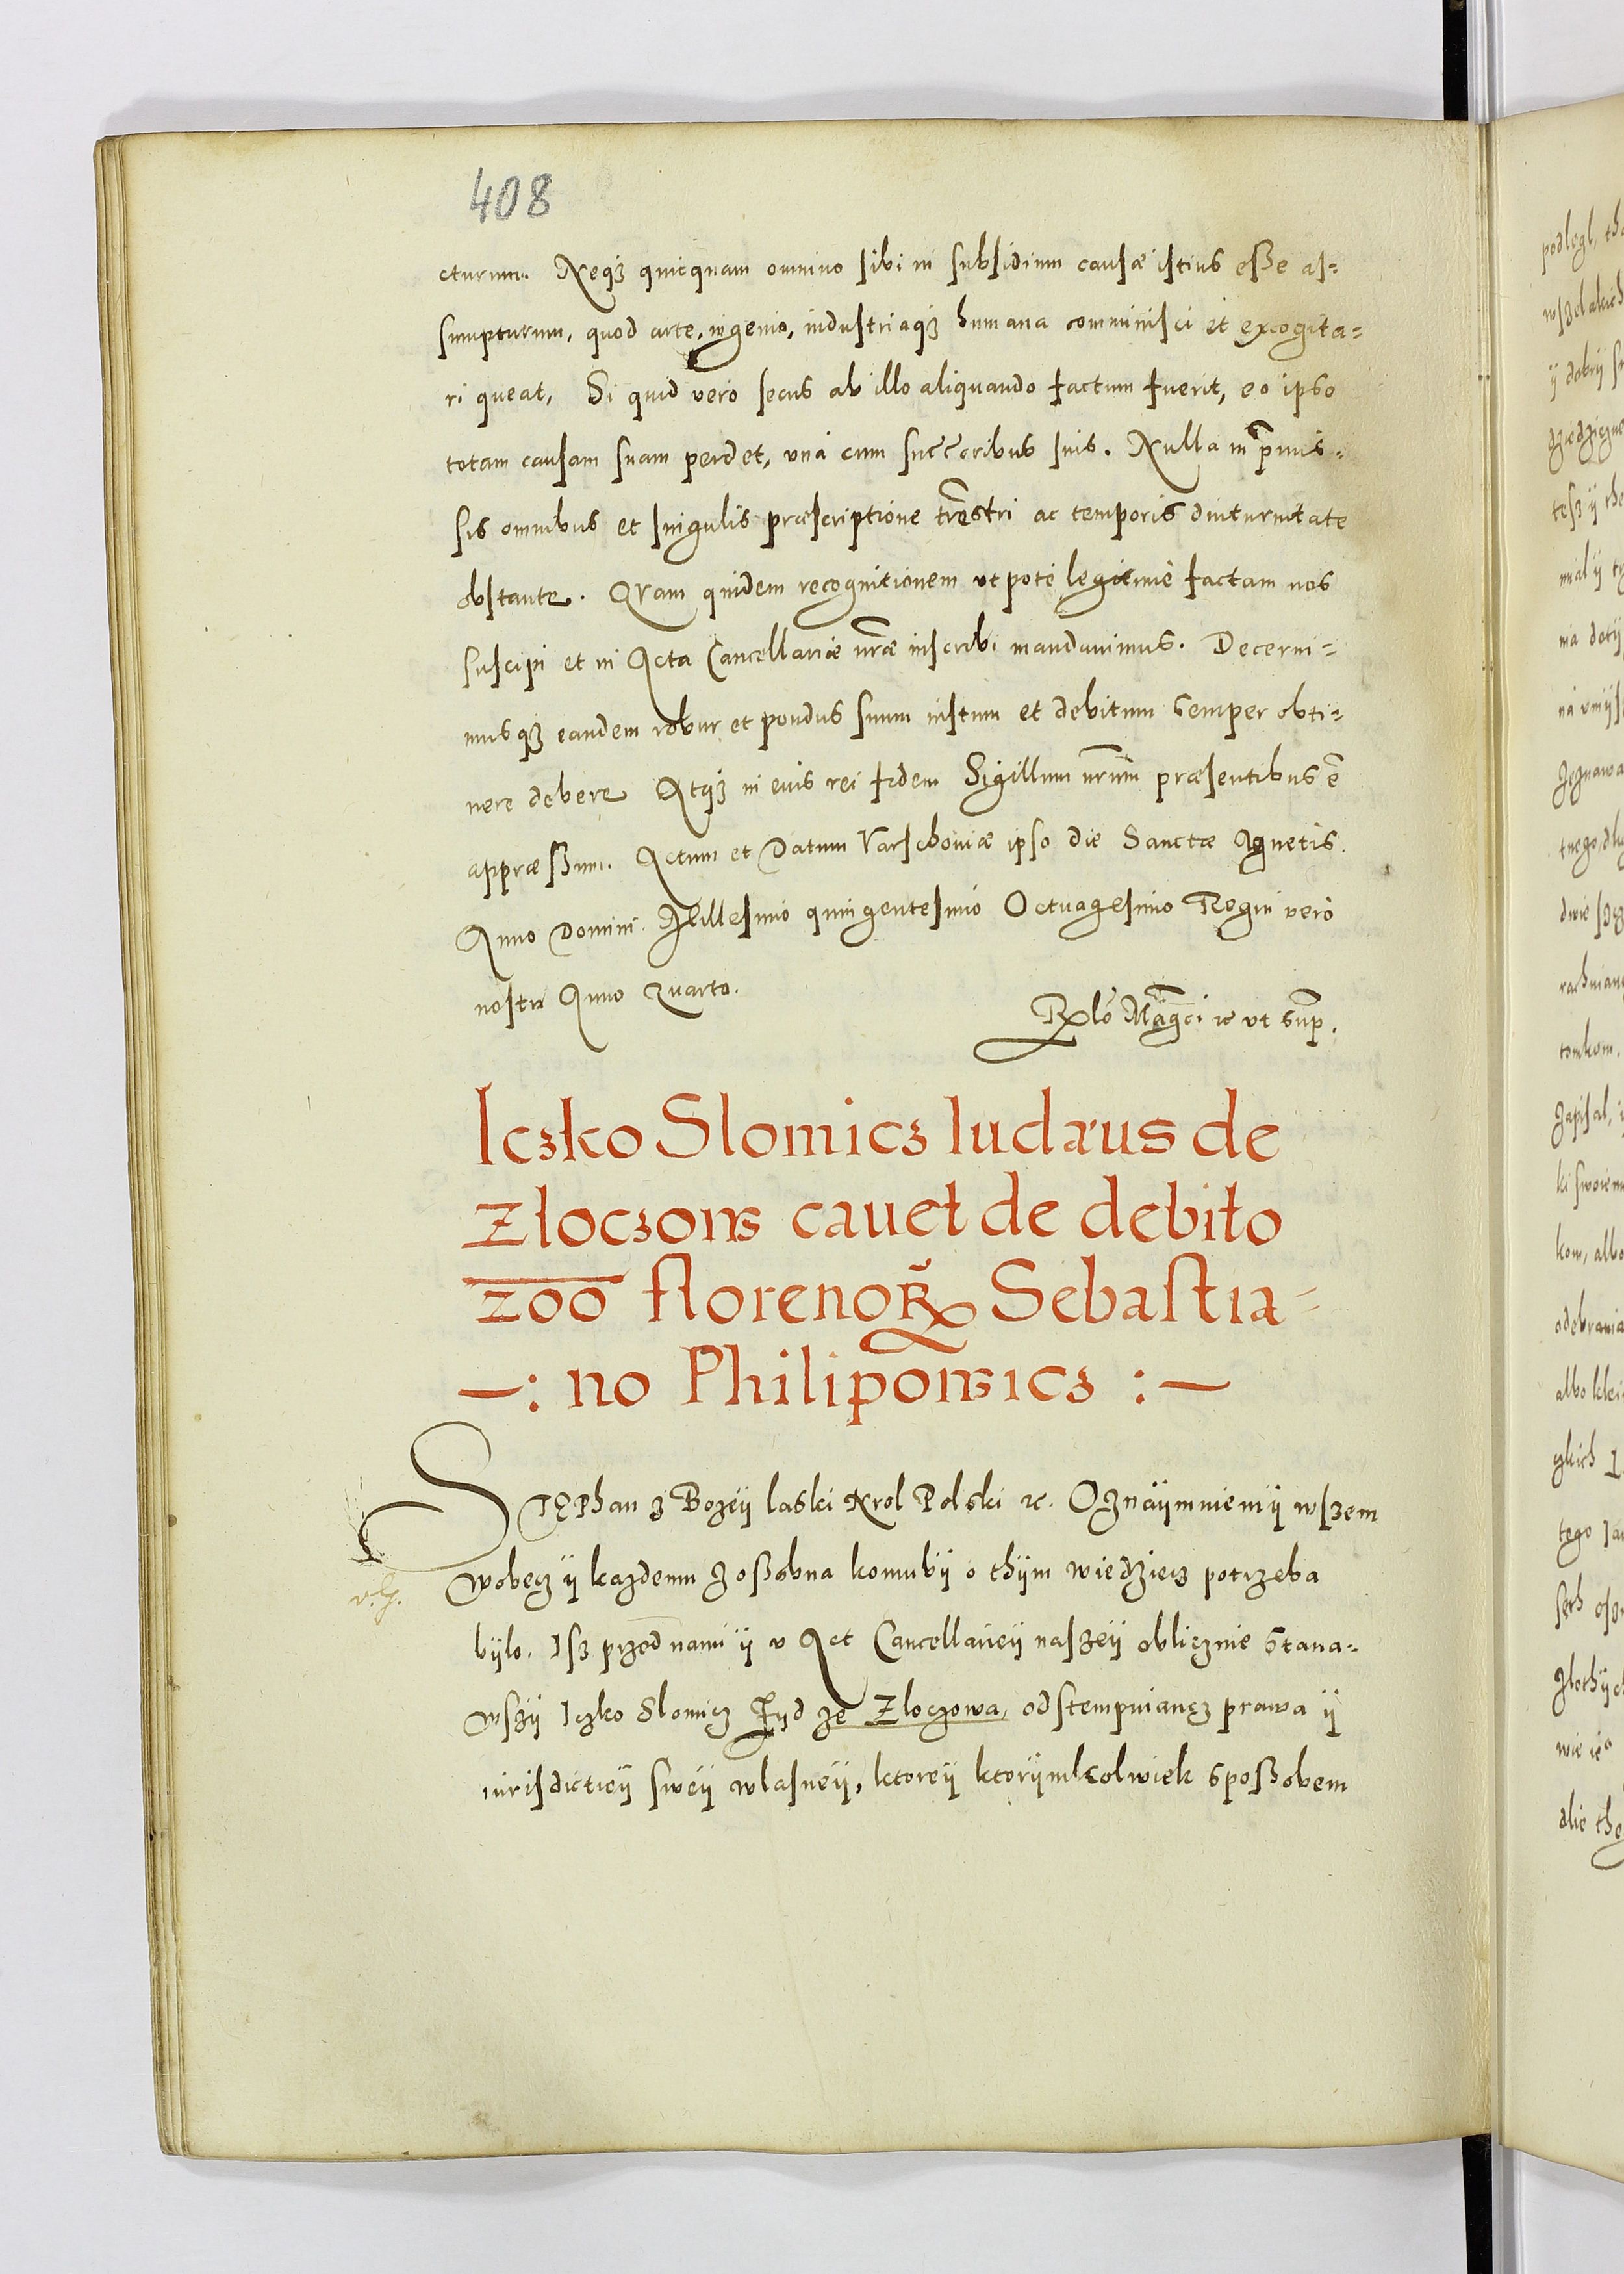 408
cturum. Neqꝫ quicquam omnino sibi in subsidium causæ istius eße as=
sumpturum, quod arte, ingenio, industriaqꝫ humana comminisci et excogita=
ri queat, Si quid vero secus ab illo aliquando factum fuerit, eo ipso
totam causam suam perdet, vná cum succcoribus suis. Nulla in pmis=
sis omnibus et singulis præscriptione trestri ac temporis diuturnitate
obstante. QVam quidem recognitionem vt poté legitimè factam nos
suscipi et in Acta Cancellariæ nræ inscribi mandauimus. Decerni=
musqꝫ eandem robur et pondus suum iustum et debitum semper obti=
nere debere Atqꝫ in eius rei fidem Sigillum nrum præsentibus ē
appræßum. Actum et Datum Varschoviæ ipso die Sanctæ Agnetis.
Anno Domini Millesimo quingentesimo Octuagesimo Regni verò
nostri Anno Quarto.
Rlo Magci ꝛc vt sup.
Iczko Slomicz Iudæus de
Złoczow cauet de debito
200 florenoR Sebastia=
—: no Philipowicz :—
STEPhan z Bozÿ laski Krol Polski ꝛc. Oznaÿmuiemÿ wszem
wobecz ÿ kazdemu zoßobna komubÿ o thÿm wiedziecz potrzeba
bÿlo. Isz przed nami ÿ v Act Cancellarieÿ naszeÿ oblicznie stana=
wszÿ Iczko Slomicz Zyd ze Zloczowa, odstempuiancz prawa ÿ
iurisdictieÿ sweÿ wlasneÿ, ktoreÿ ktorÿmkolwiek sposßobem
podlegl, th
wszelakich
tesz ÿ
tnego
dwie
tomkom.
zapisal,
ki swoiem
kom, albo
odebrania
albo
tego
dlie